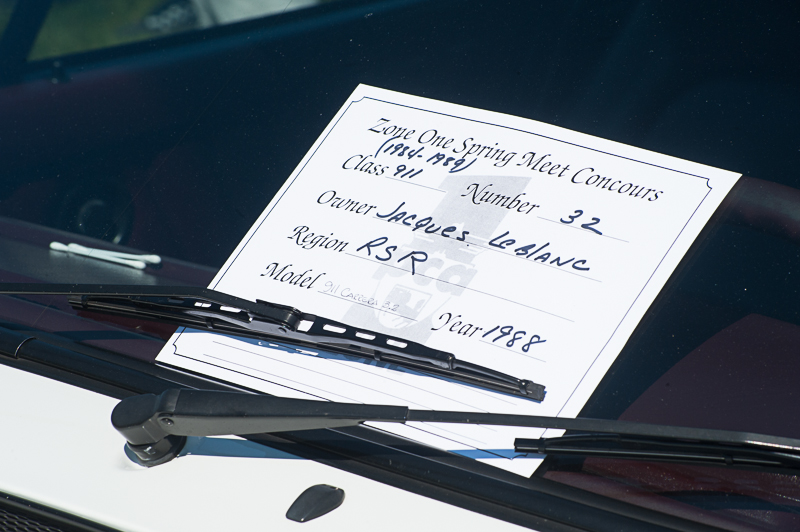 Zone One Spring Meet Concours
(1984-1989)
Class 911 Number 32
Owner Jacques LeBlanc
Region RSR
Model 911 Carrera 3.2 Year 1988